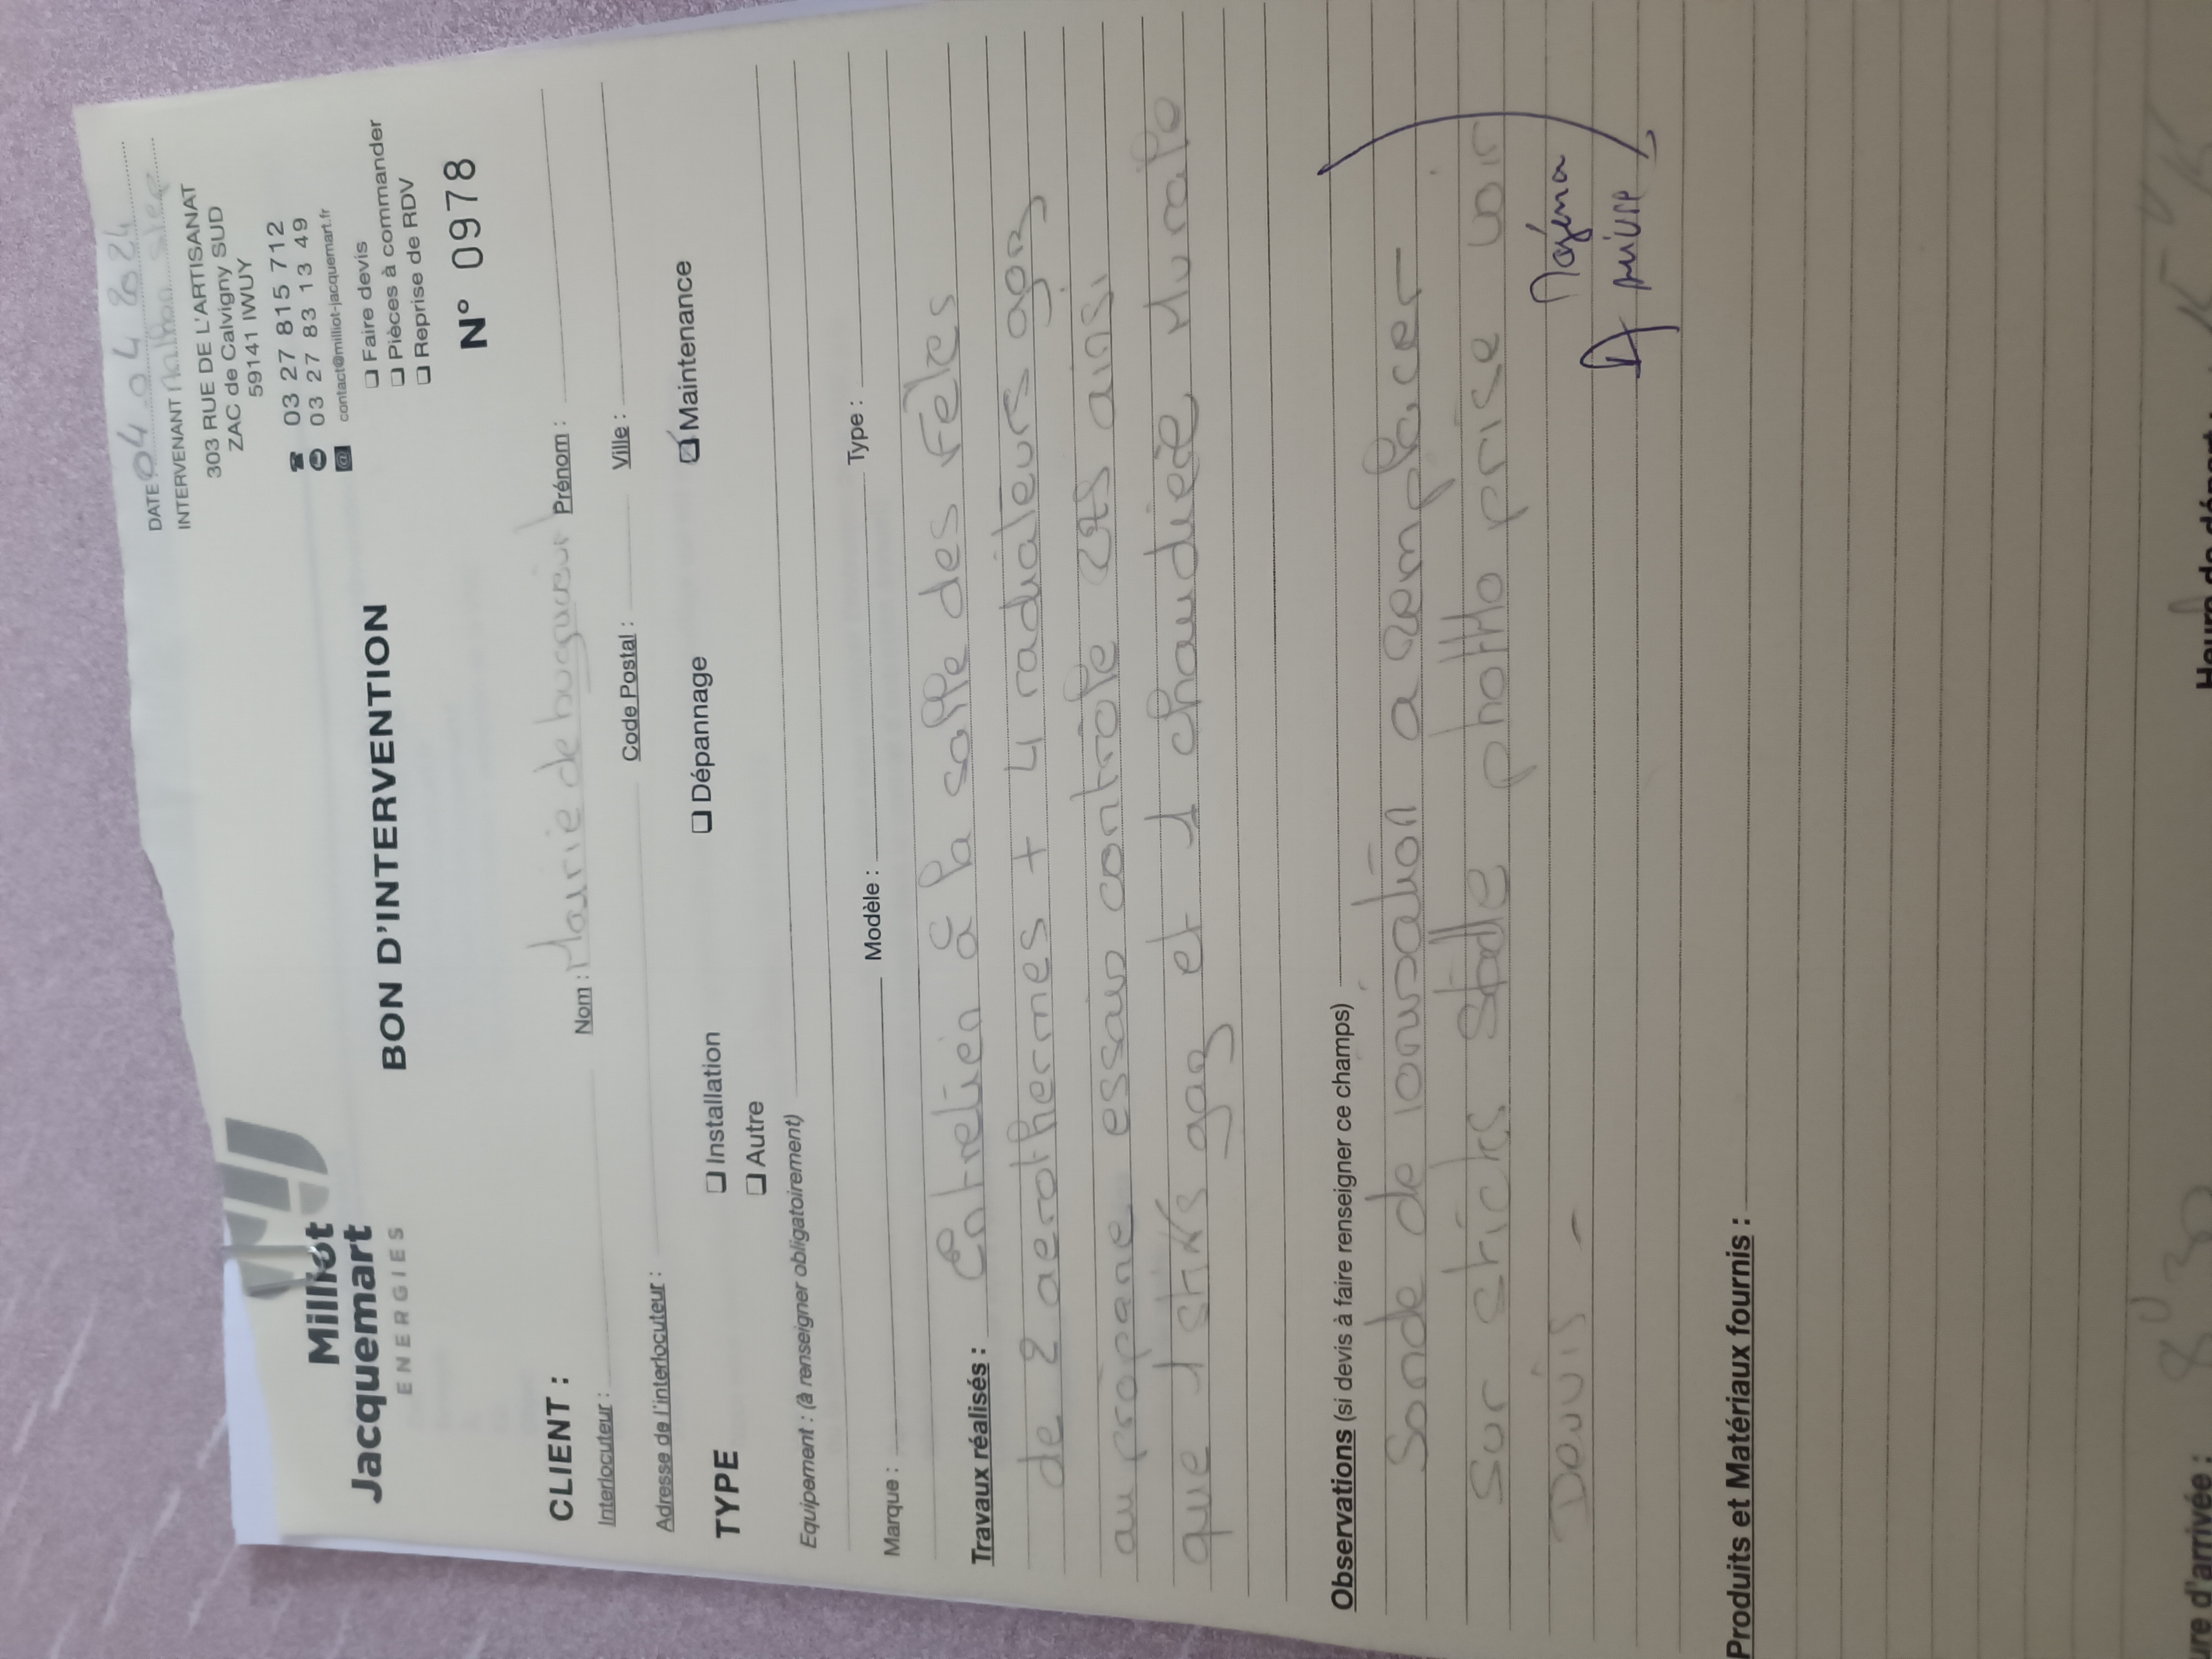 DATE 04 04 2024
INTERVENANT
Milliot
Jacquemart
ENERGIES
303 RUE DE L'ARTISANAT
ZAC de Calvigny SUD
59141 IWUY
03 27 815 712
03 27 83 13 49
contact@milliot-jacquemart.fr
BON D'INTERVENTION
❏ Faire devis
❏ Pièces à commander
❏ Reprise de RDV
N° 0978
CLIENT :
Nom : Mairie de Prénom :
Interlocuteur :
Code Postal : Ville :
Adresse de l'interlocuteur :
TYPE ❏ Installation ❏ Dépannage ☑ Maintenance
❏ Autre
Equipement : (à renseigner obligatoirement)
Marque : Modèle : Type :
Travaux réalisés : Entretien à la salle des Fêtes
de 2 aerothermes + 4 radiateurs gaz
au propane essais contrôle ainsi
que 1 gaz et 1 chaudière Murale
Observations (si devis à faire renseigner ce champs)
Sonde de ionisation a remplacer
sur stricks stadle photto prise voir
Devis -
Produits et Matériaux fournis :
ure d'arrivée : 8 30 Heure de départ :